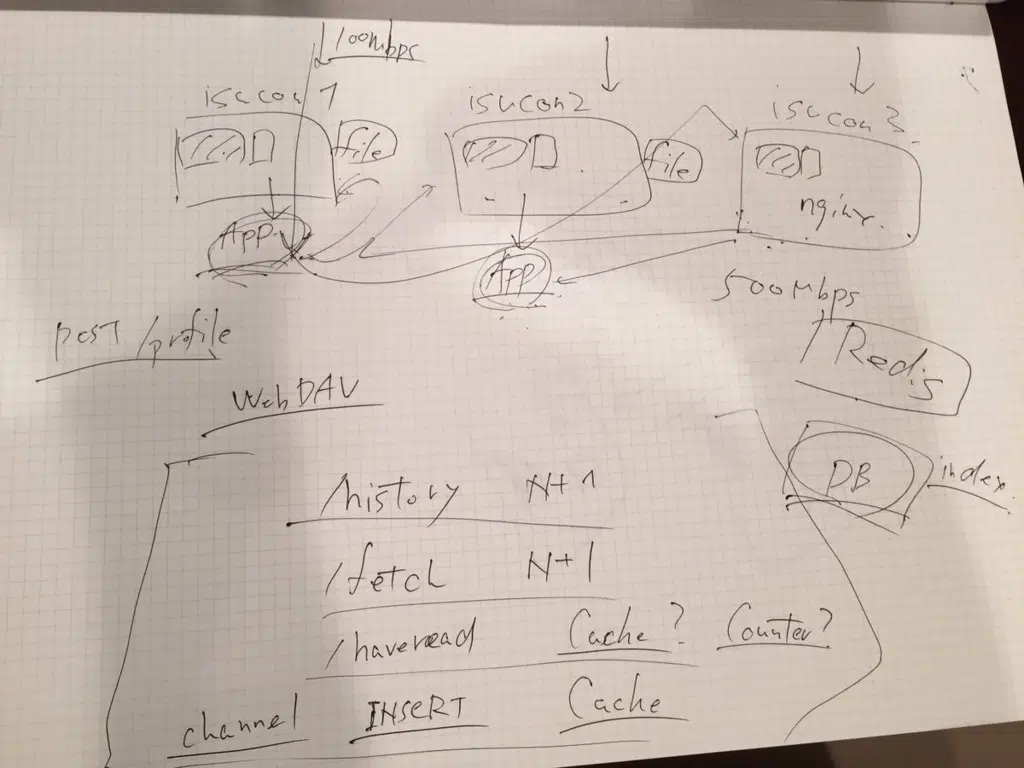 100Mbps
isucon1
isucon2
isucon3
file
file
nginx
App
App
500Mbps
POST /profile
Redis
WebDAV
DB
index
/history N+1
/fetch N+1
/haveread Cache? Counter?
channel INSERT Cache